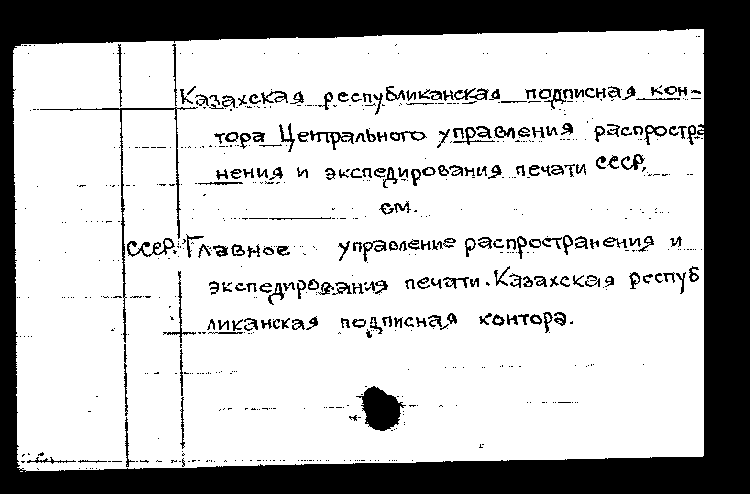 Казахская республиканская подписная кон-
тора Центрального управления распростра
нения и экспедирования печати СССР,
см.
СССР. Главное управление распространения и
экспедирования печати. Казахская респуб
ликанская подписная контора.